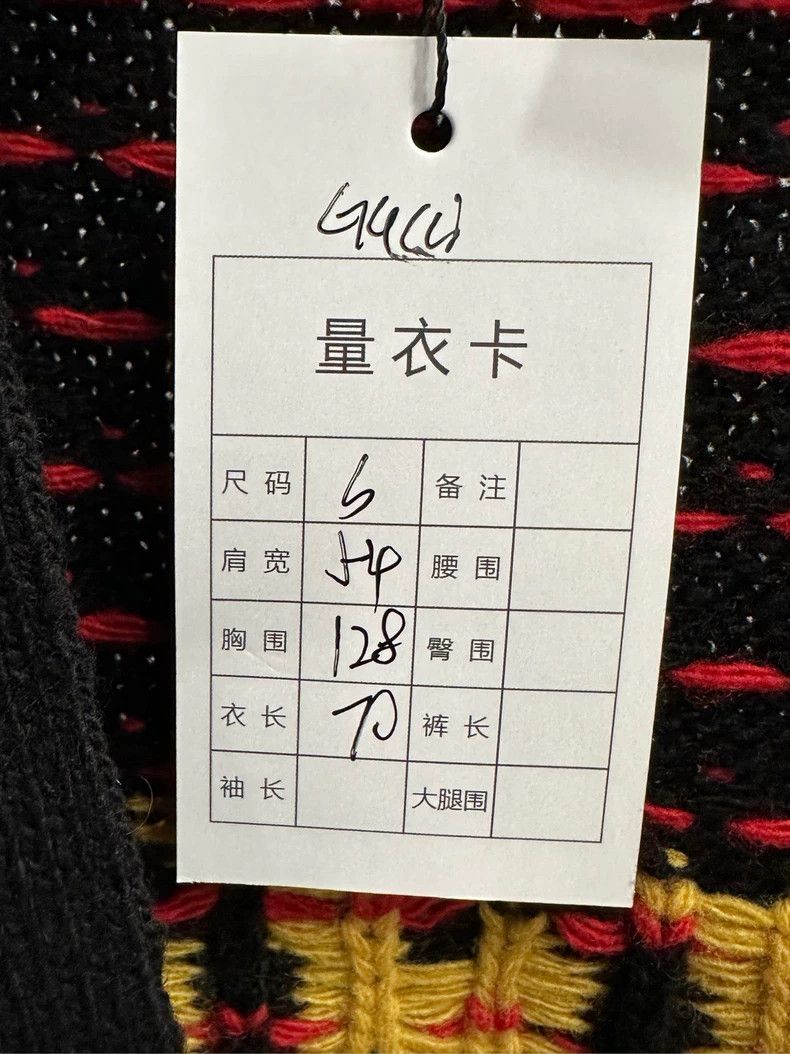 Gucci
量衣卡
尺码 S 备注
肩宽 54 腰围
胸围 128 臀围
衣长 70 裤长
袖长 大腿围